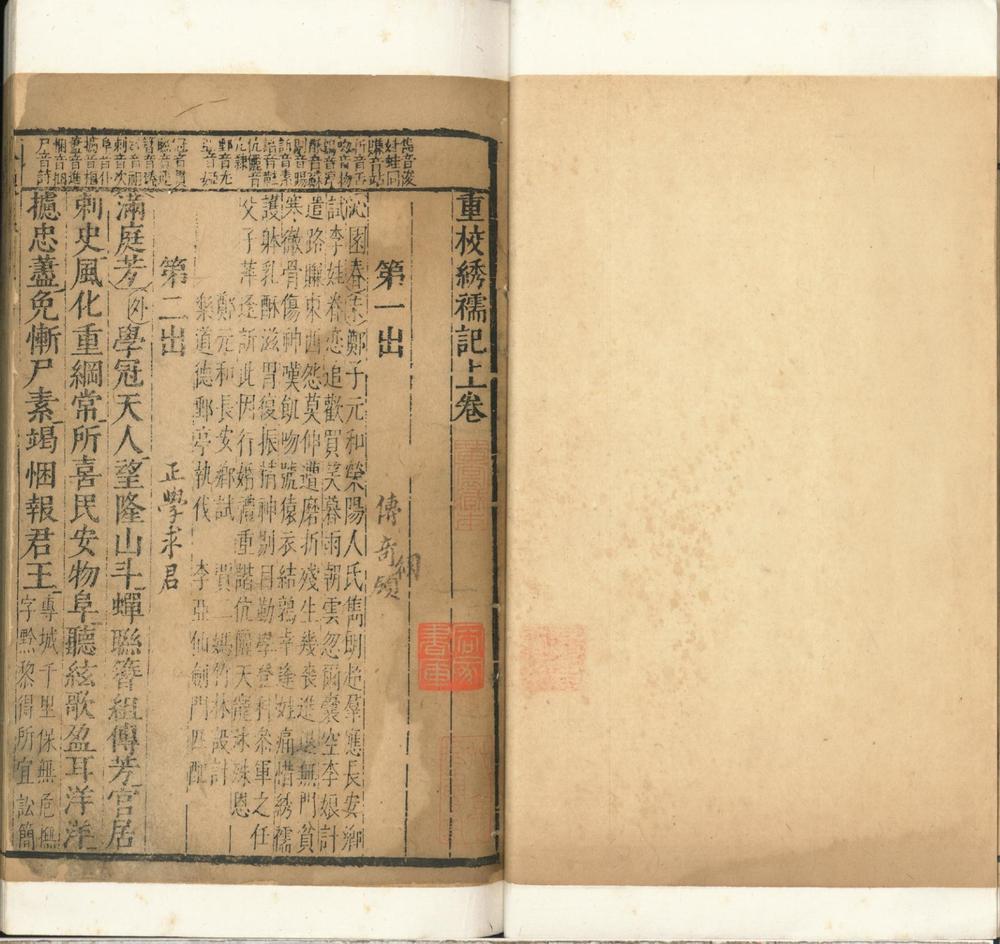 重校綉襦記上卷
第一出　傳奇綱領
沁園春末鄭子元和滎陽人氏雋明超羣應長安鄉
試李娃眷戀追歡買笑暮雨朝雲忽爾囊空李娘計
遣路賺東西怨莫伸遭磨折殘生幾喪進退無門貧
寒徹骨傷神嘆飢吻號猿衣結鶉幸逢娃痛惜綉襦
護躰乳酥滋胃復振精神剔目勤學登科參軍之任
父子萍逢訴此因行婚禮重諧伉儷天寵沐殊恩
鄭元和長安鄉試　賈二媽竹林設計
樂道德郵亭執伐　李亞仙劍門匹配
第二出　正學求君
滿庭芳外學冠天人望隆山斗蟬聯簪組傳芳官居
刺史風化重綱常所喜民安物阜聽絃歌盈耳洋洋
攄忠藎免慚尸素竭悃報君王專城千里保無危撫
字黔黎得所宜訟簡
雋音浚
娃蛙同
賺音站
吻音物
訴音素
伉音亢
冠音貫
刺音次
尸音詩
書庫